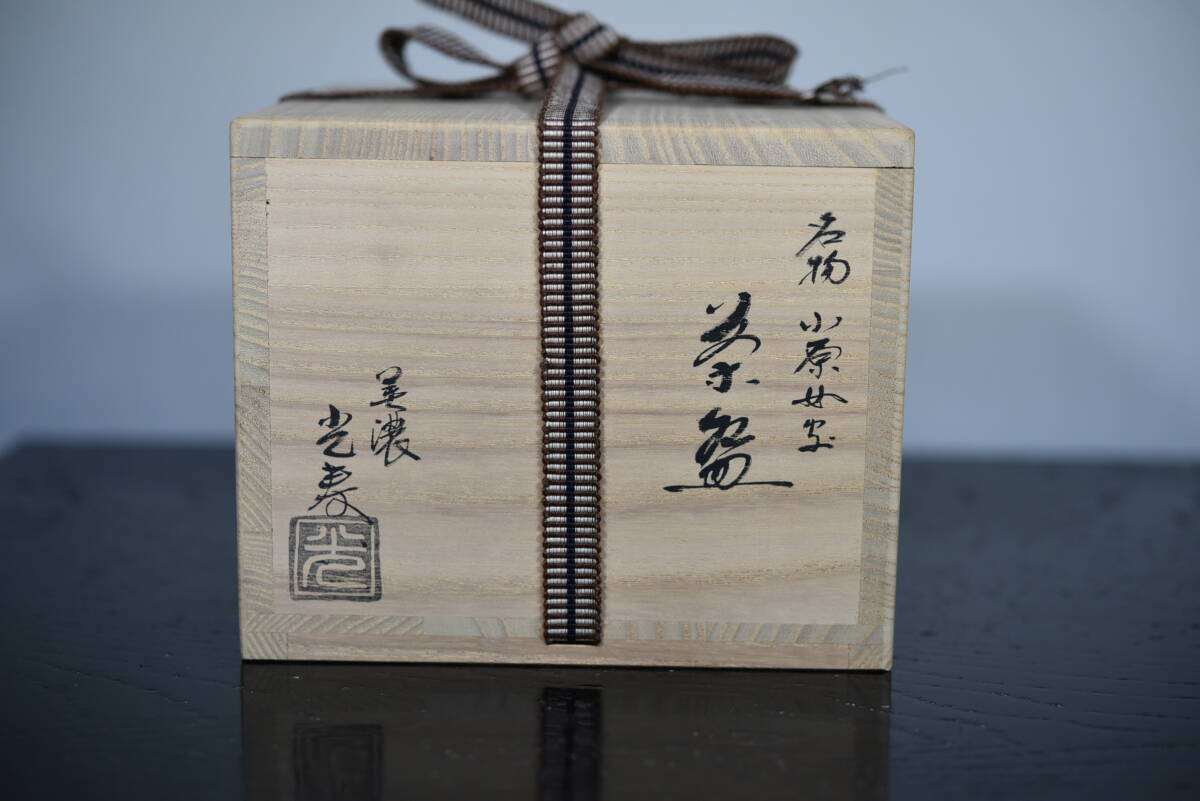 名物 小原女写
茶盌
美濃
光春
光